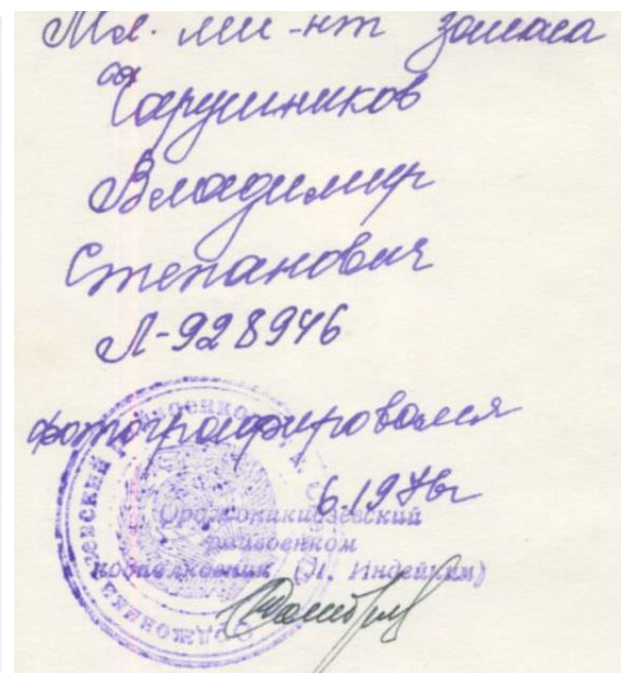 Мл. л-нт запаса
Сарушников
Владимир
Степанович
Л-928946
фотографировался
6.1976г
Орджоникидзевский
райвоенком
подполковник (И. Индейкин)